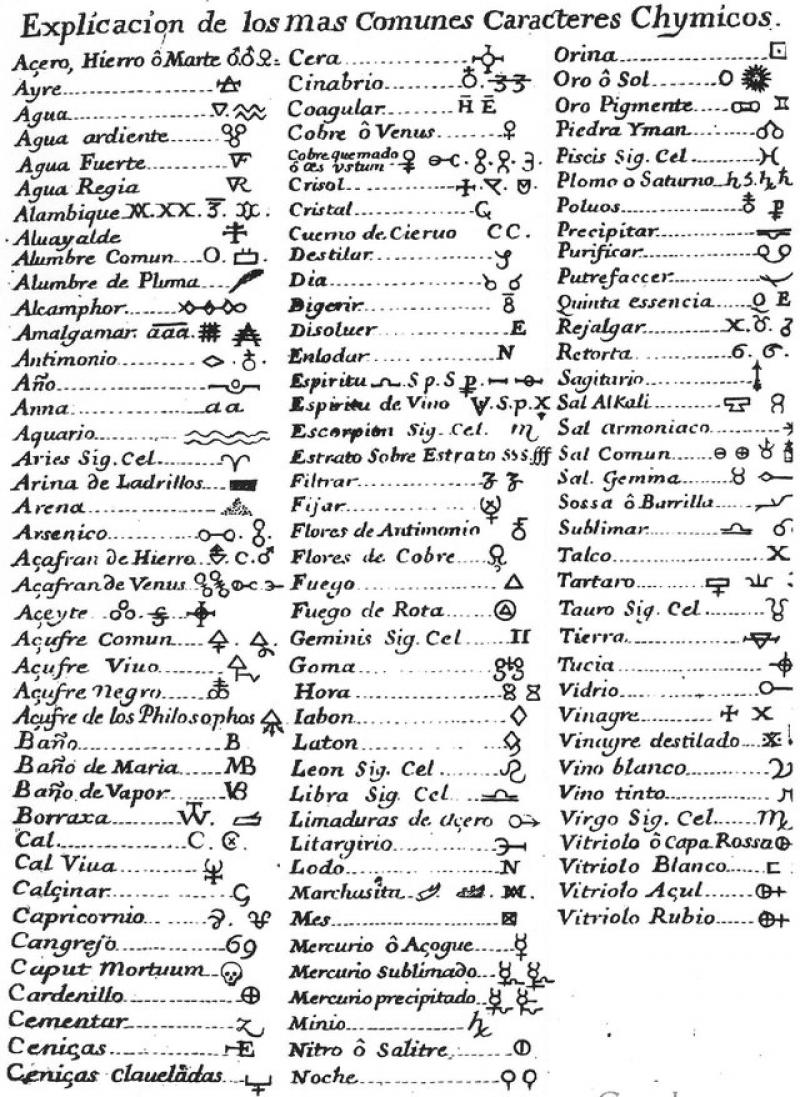 Explicacion de los mas Comunes Caracteres Chymicos.
Açero, Hierro ô Marte
Ayre
Agua
Agua ardiente
Agua Fuerte
Agua Regia
Alambique
Aluayalde
Alumbre Comun
Alumbre de Pluma
Alcamphor
Amalgamar. aaa.
Antimonio
Año
Anna a a
Aquario
Aries Sig. Cel
Arina de Ladrillos
Arena
Arsenico
Açafran de Hierro
Açafran de Venus
Aceyte
Açufre Comun
Açufre Viuo
Açufre Negro
Açufre de los Philosophos
Baño B
Baño de Maria MB
Baño de Vapor VB
Borraxa
Cal. C.
Cal Viua
Calçinar
Capricornio
Cangrejo 69
Caput Mortuum
Cardenillo
Cementar
Ceniças
Ceniças claueladas
Cera
Cinabrio
Coagular H E
Cobre ô Venus
Cobre quemado
ô æs vstum
Crisol
Cristal
Cuerno de Cieruo C C.
Destilar
Dia
Digerir
Disoluer E
Enlodar N
Espiritu
Espiritu de Vino
Escorpion Sig. Cel. ♏
Estrato Sobre Estrato sss. fff
Filtrar
Fijar
Flores de Antimonio
Flores de Cobre
Fuego △
Fuego de Rota
Geminis Sig. Cel II
Goma
Hora
Iabon
Laton
Leon Sig. Cel ♌
Libra Sig. Cel ♎
Limaduras de Açero
Litargirio
Lodo N
Marchasita
Mes
Mercurio ô Açogue ☿
Mercurio Sublimado
Mercurio precipitado
Minio
Nitro ô Salitre
Noche
Orina
Oro ô Sol
Oro Pigmente
Piedra Yman
Piscis Sig. Cel ♓
Plomo o Saturno
Poluos
Precipitar
Purificar
Putrefaccer
Quinta essencia
Rejalgar
Retorta
Sagitario
Sal AlKali
Sal armoniaco
Sal Comun
Sal. Gemma
Sossa ô Barrilla
Sublimar
Talco X
Tartaro
Tauro Sig. Cel
Tierra
Tucia
Vidrio
Vinagre
Vinagre destilado
Vino blanco
Vino tinto
Virgo Sig. Cel. ♍
Vitriolo ô Capa Rossa
Vitriolo Blanco
Vitriolo Açul
Vitriolo Rubio